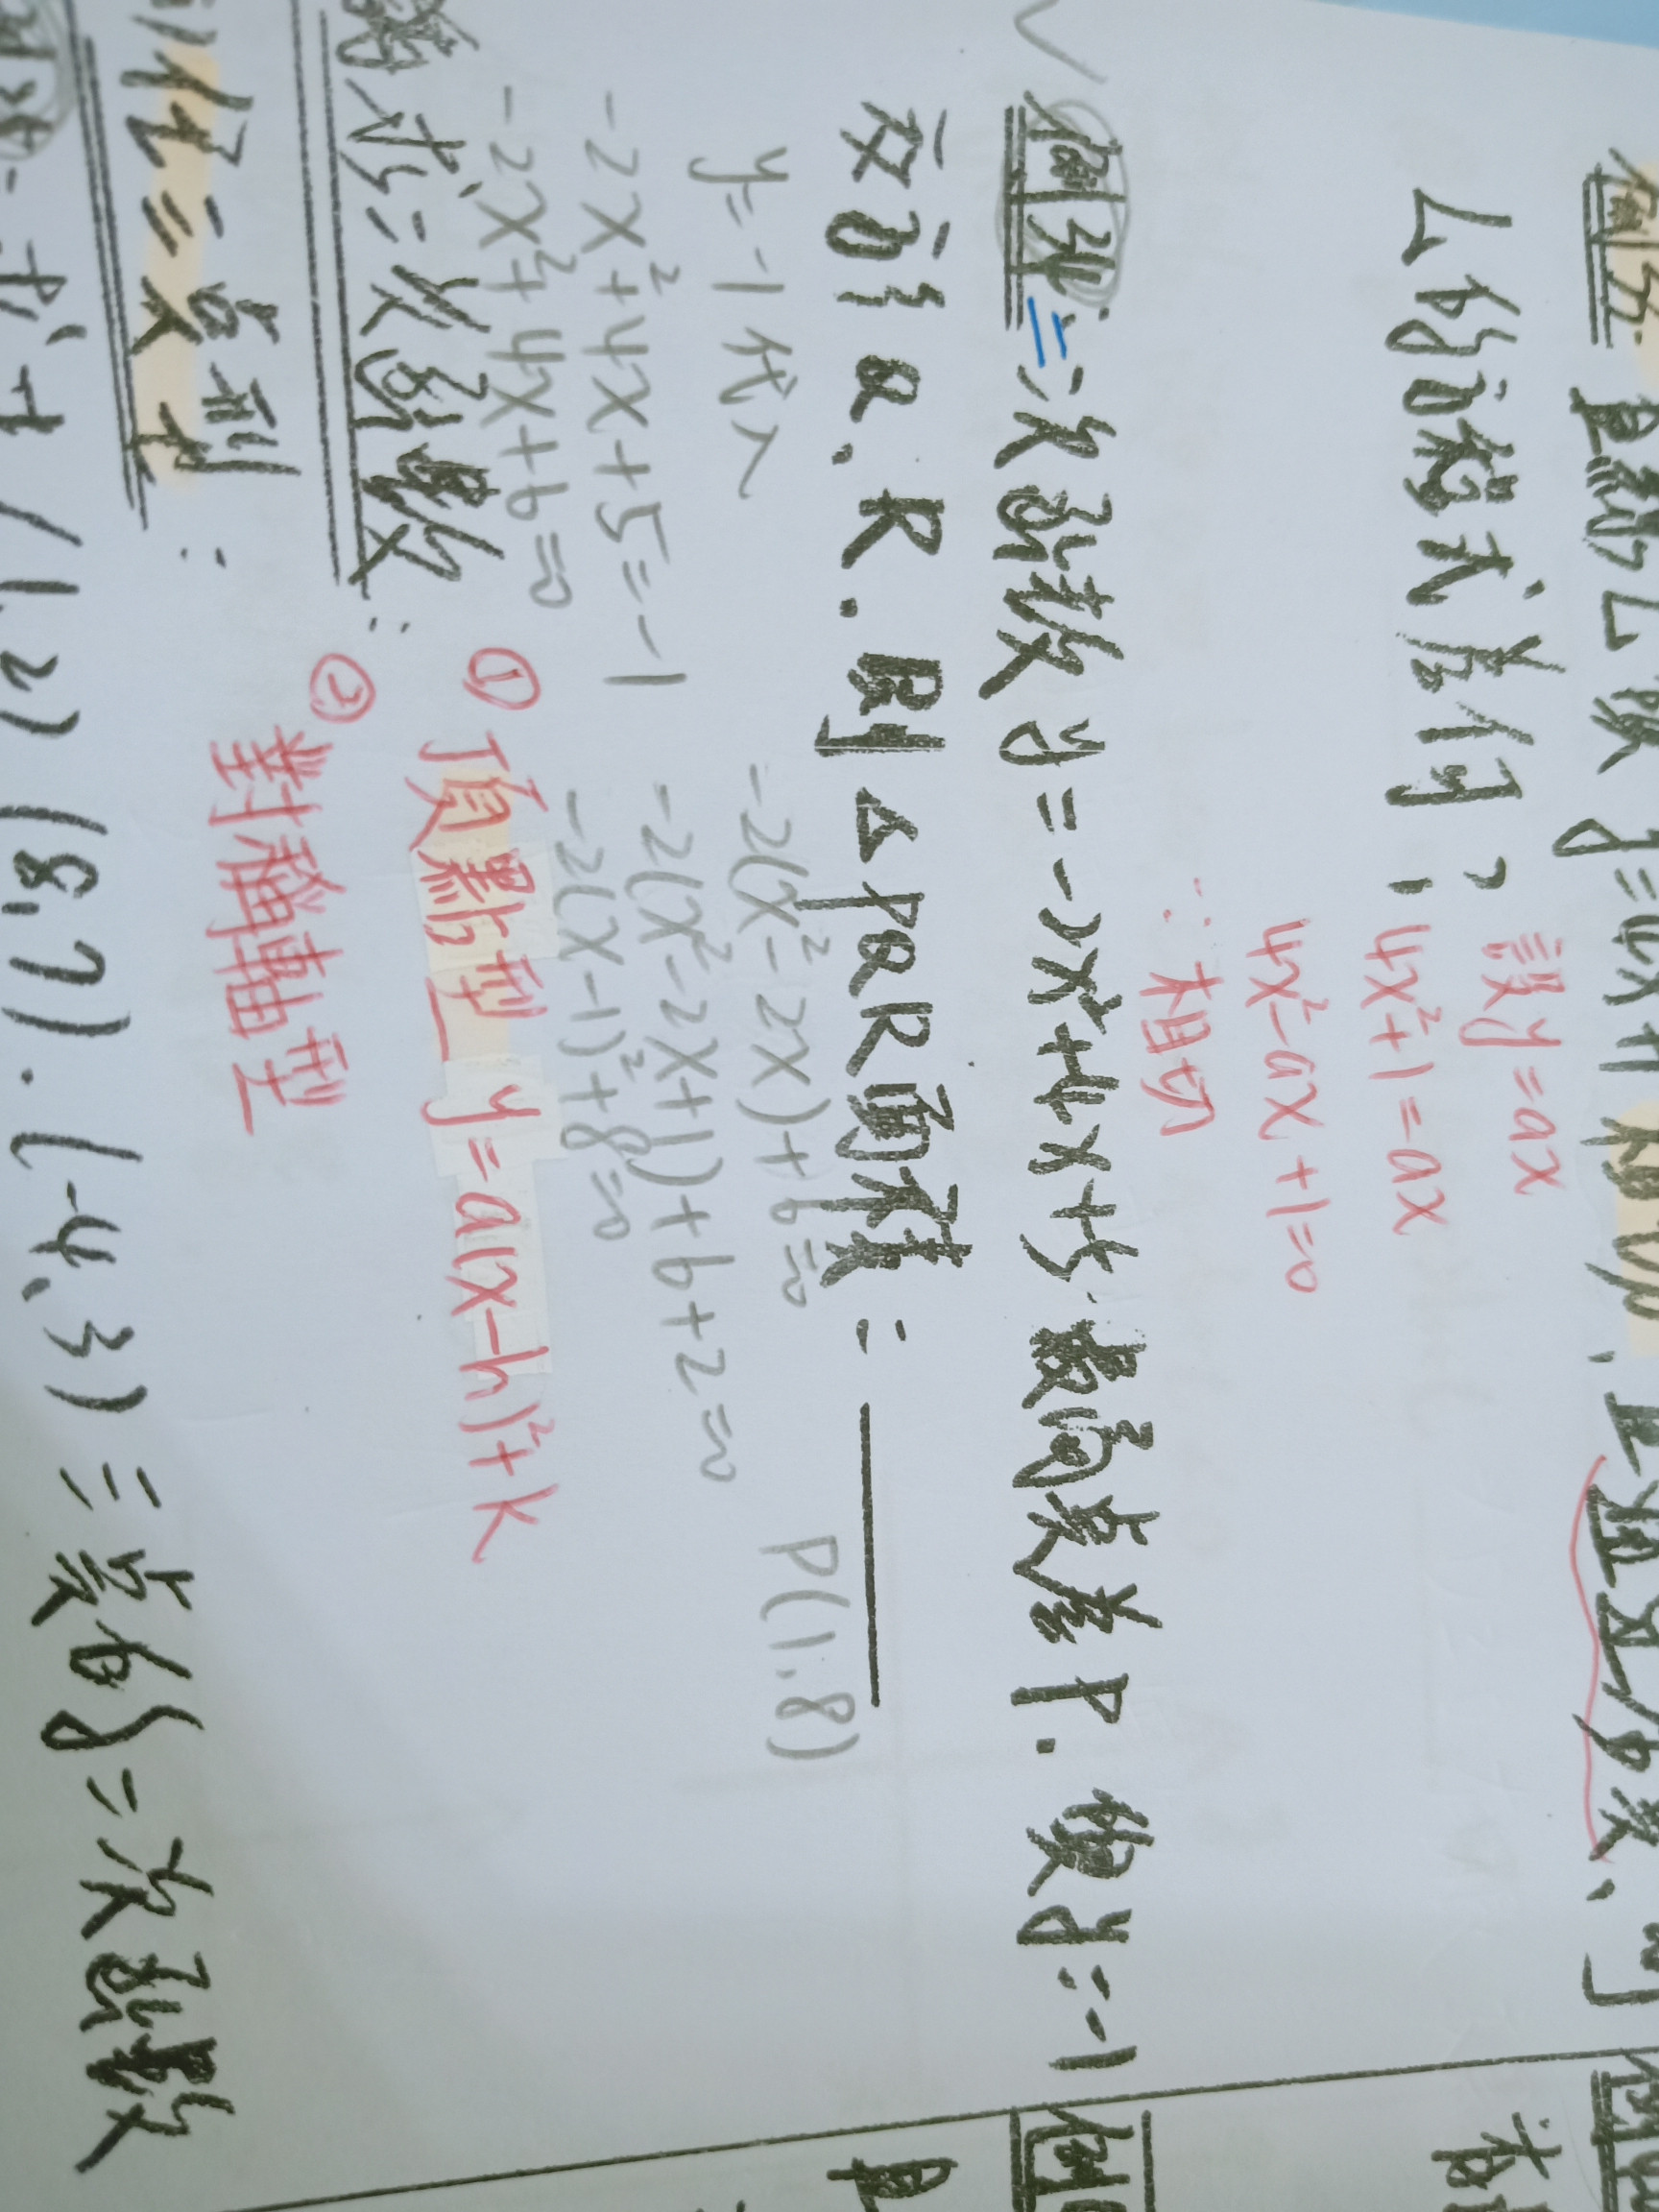 直線L跟y=4x²+1相切,且通過
L的方程式為何?
設y=ax
4x²+1=ax
4x²-ax+1=0
∵相切
例 二次函數y=-2x²+4x+5.最高點為P.假y=-1
交於Q.R.則△PQR面積=
y=-1代入
-2x²+4x+5=-1
-2x²+4x+6=0
-2(x²-2x)+6=0
-2(x²-2x+1)+6+2=0
-2(x-1)²+8=0
P(1,8)
求二次函數:
①頂點型 y=a(x-h)²+k
②對稱軸型
任三點型:
(8,7).(-4,3)三點的二次函數